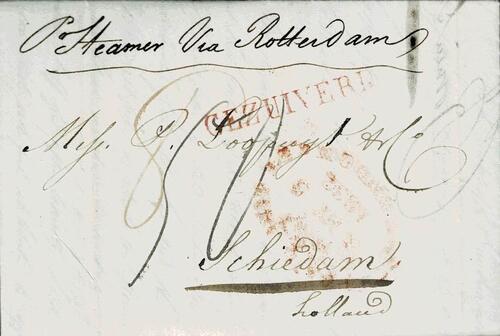 Pr Steamer Via Rotterdam
GEZUIVERD
Mess. P. & Co
50
Schiedam.
Holland